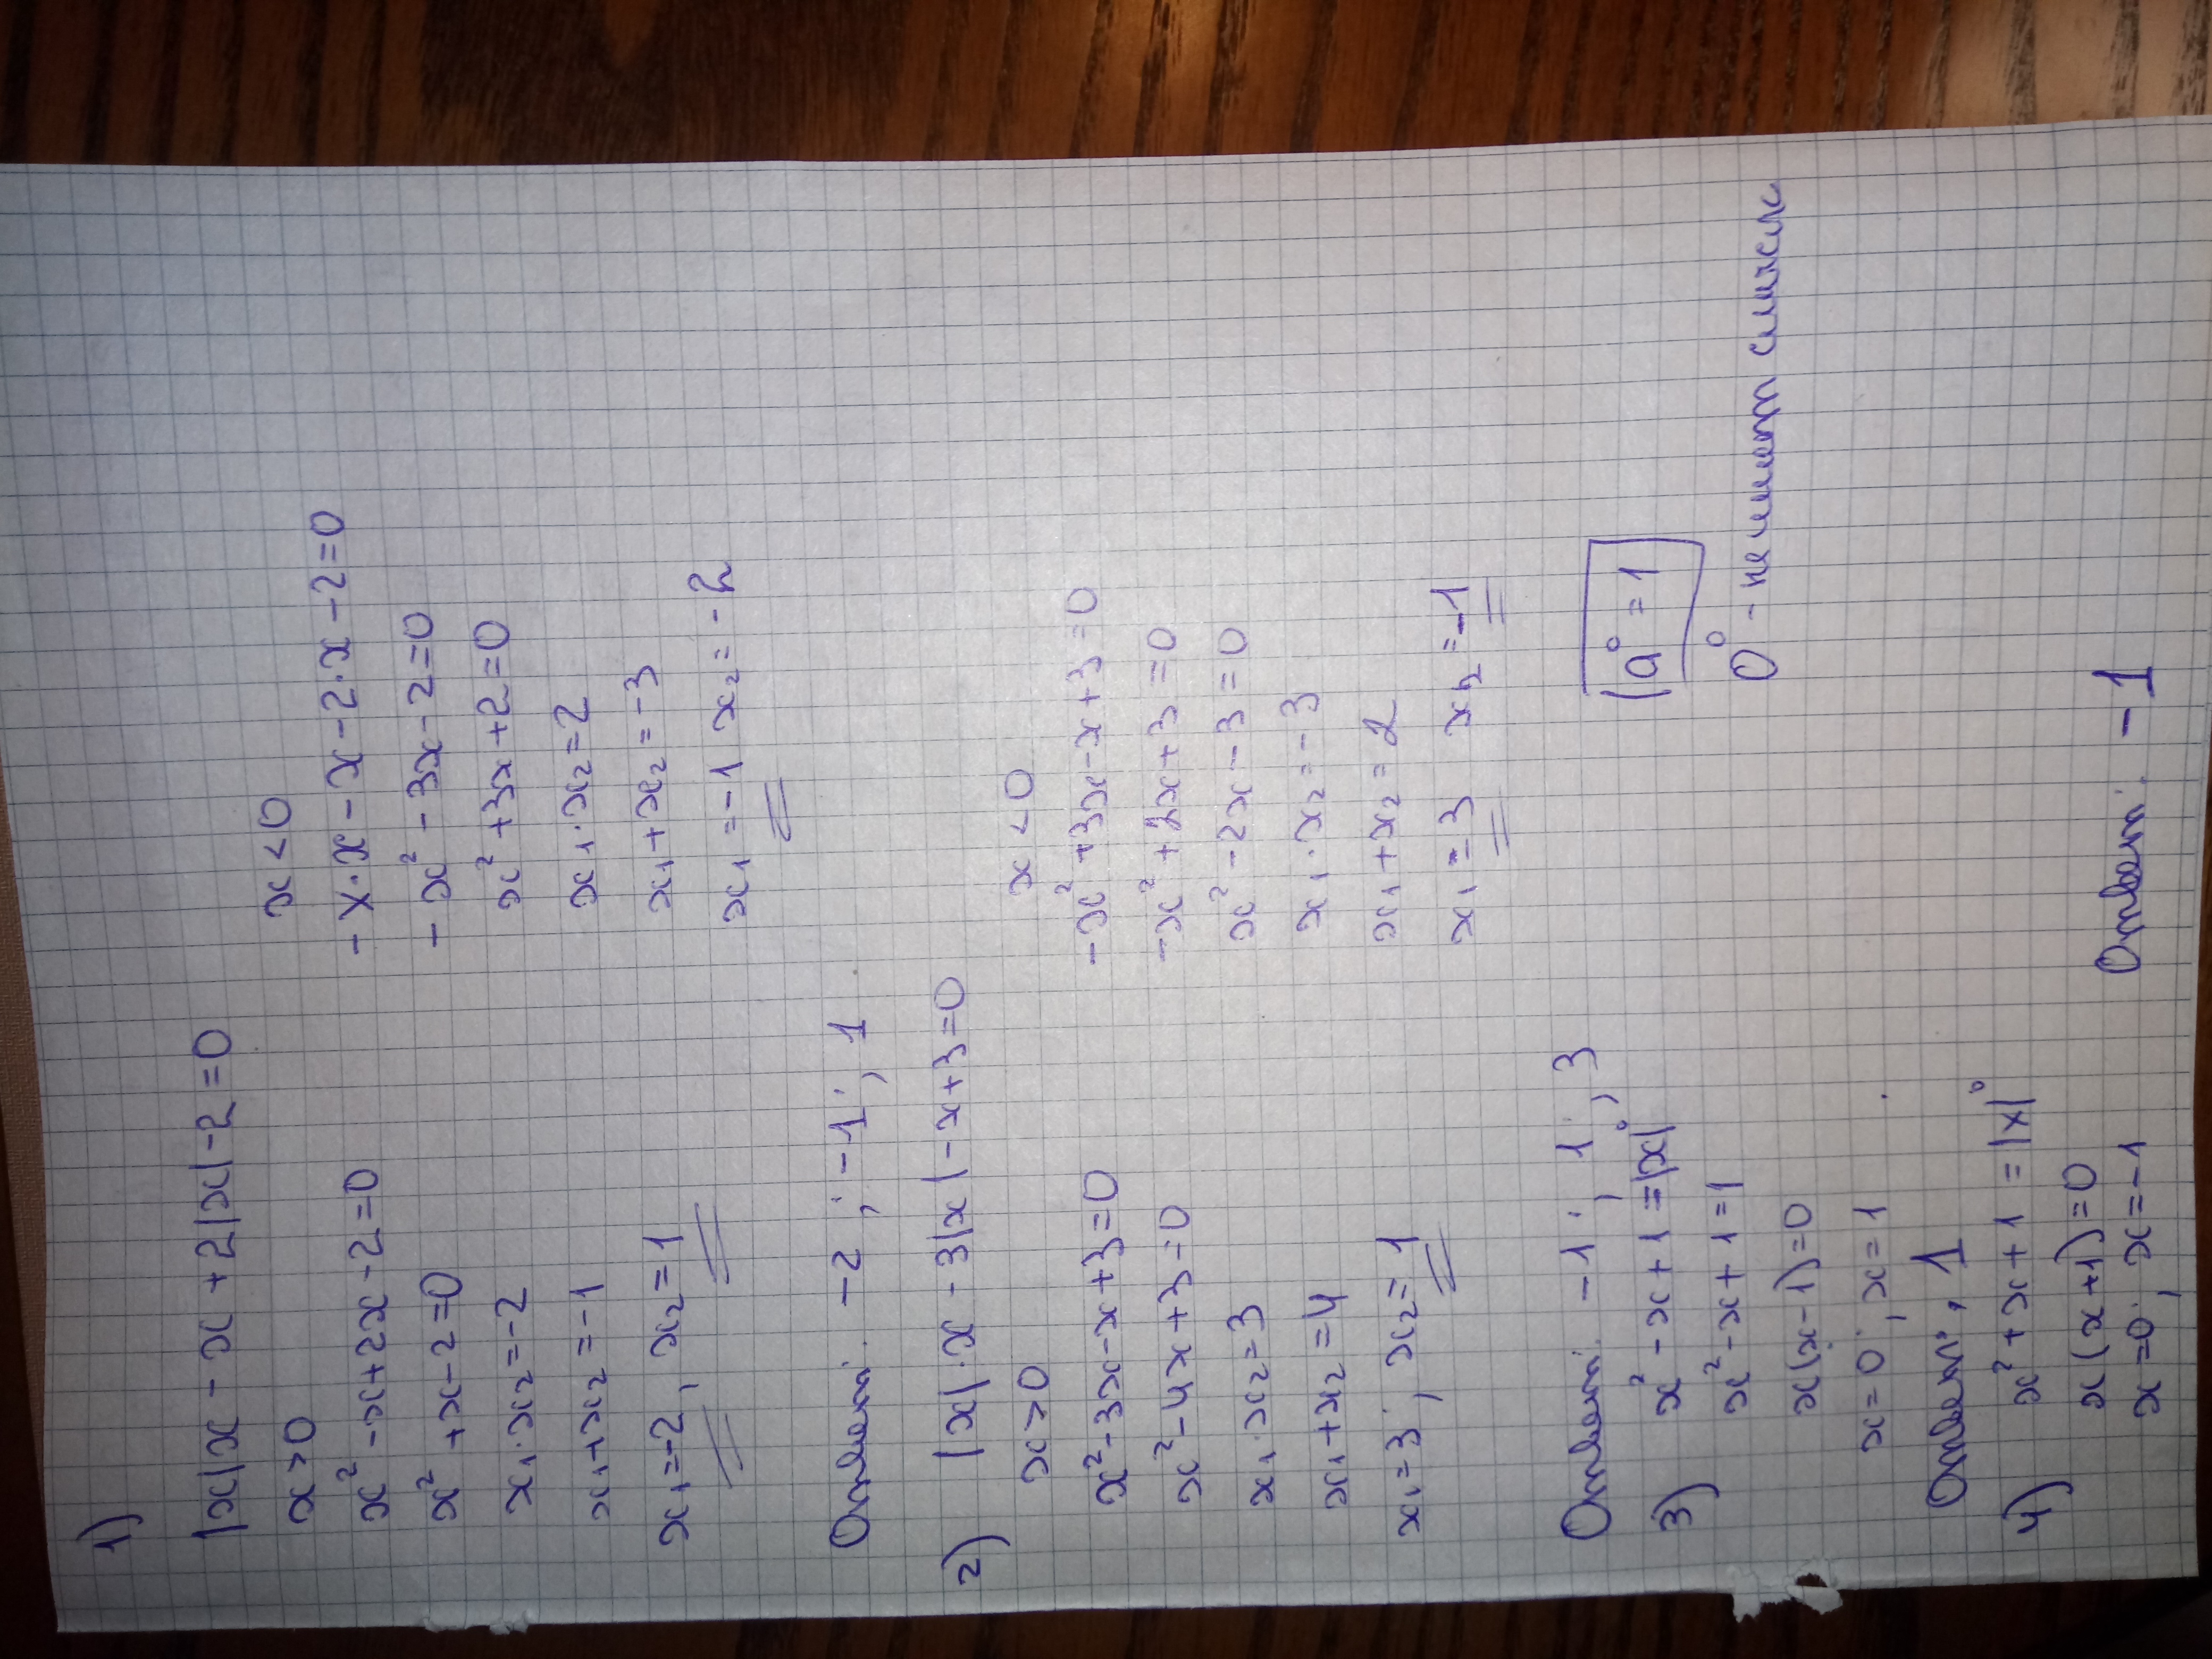 1)
|x|x - x + 2|x| - 2 = 0
x > 0
x² - x + 2x - 2 = 0
x² + x - 2 = 0
x₁ · x₂ = -2
x₁ + x₂ = -1
x₁ = -2, x₂ = 1
x < 0
- x · x - x - 2 · x - 2 = 0
- x² - 3x - 2 = 0
x² + 3x + 2 = 0
x₁ · x₂ = 2
x₁ + x₂ = -3
x₁ = -1 x₂ = -2
Ответ: -2; -1; 1
2) |x| · x - 3|x| - x + 3 = 0
x > 0
x² - 3x - x + 3 = 0
x² - 4x + 3 = 0
x₁ · x₂ = 3
x₁ + x₂ = 4
x₁ = 3; x₂ = 1
x < 0
- x² + 3x - x + 3 = 0
- x² + 2x + 3 = 0
x² - 2x - 3 = 0
x₁ · x₂ = -3
x₁ + x₂ = 2
x₁ = 3 x₂ = -1
Ответ: -1; 1; 3
3) x² - x + 1 = |x|⁰
x² - x + 1 = 1
x(x - 1) = 0
x = 0; x = 1
a⁰ = 1
0⁰ - не имеет смысл
Ответ: 1
4) x² + x + 1 = |x|⁰
x(x + 1) = 0
x = 0; x = -1
Ответ: -1